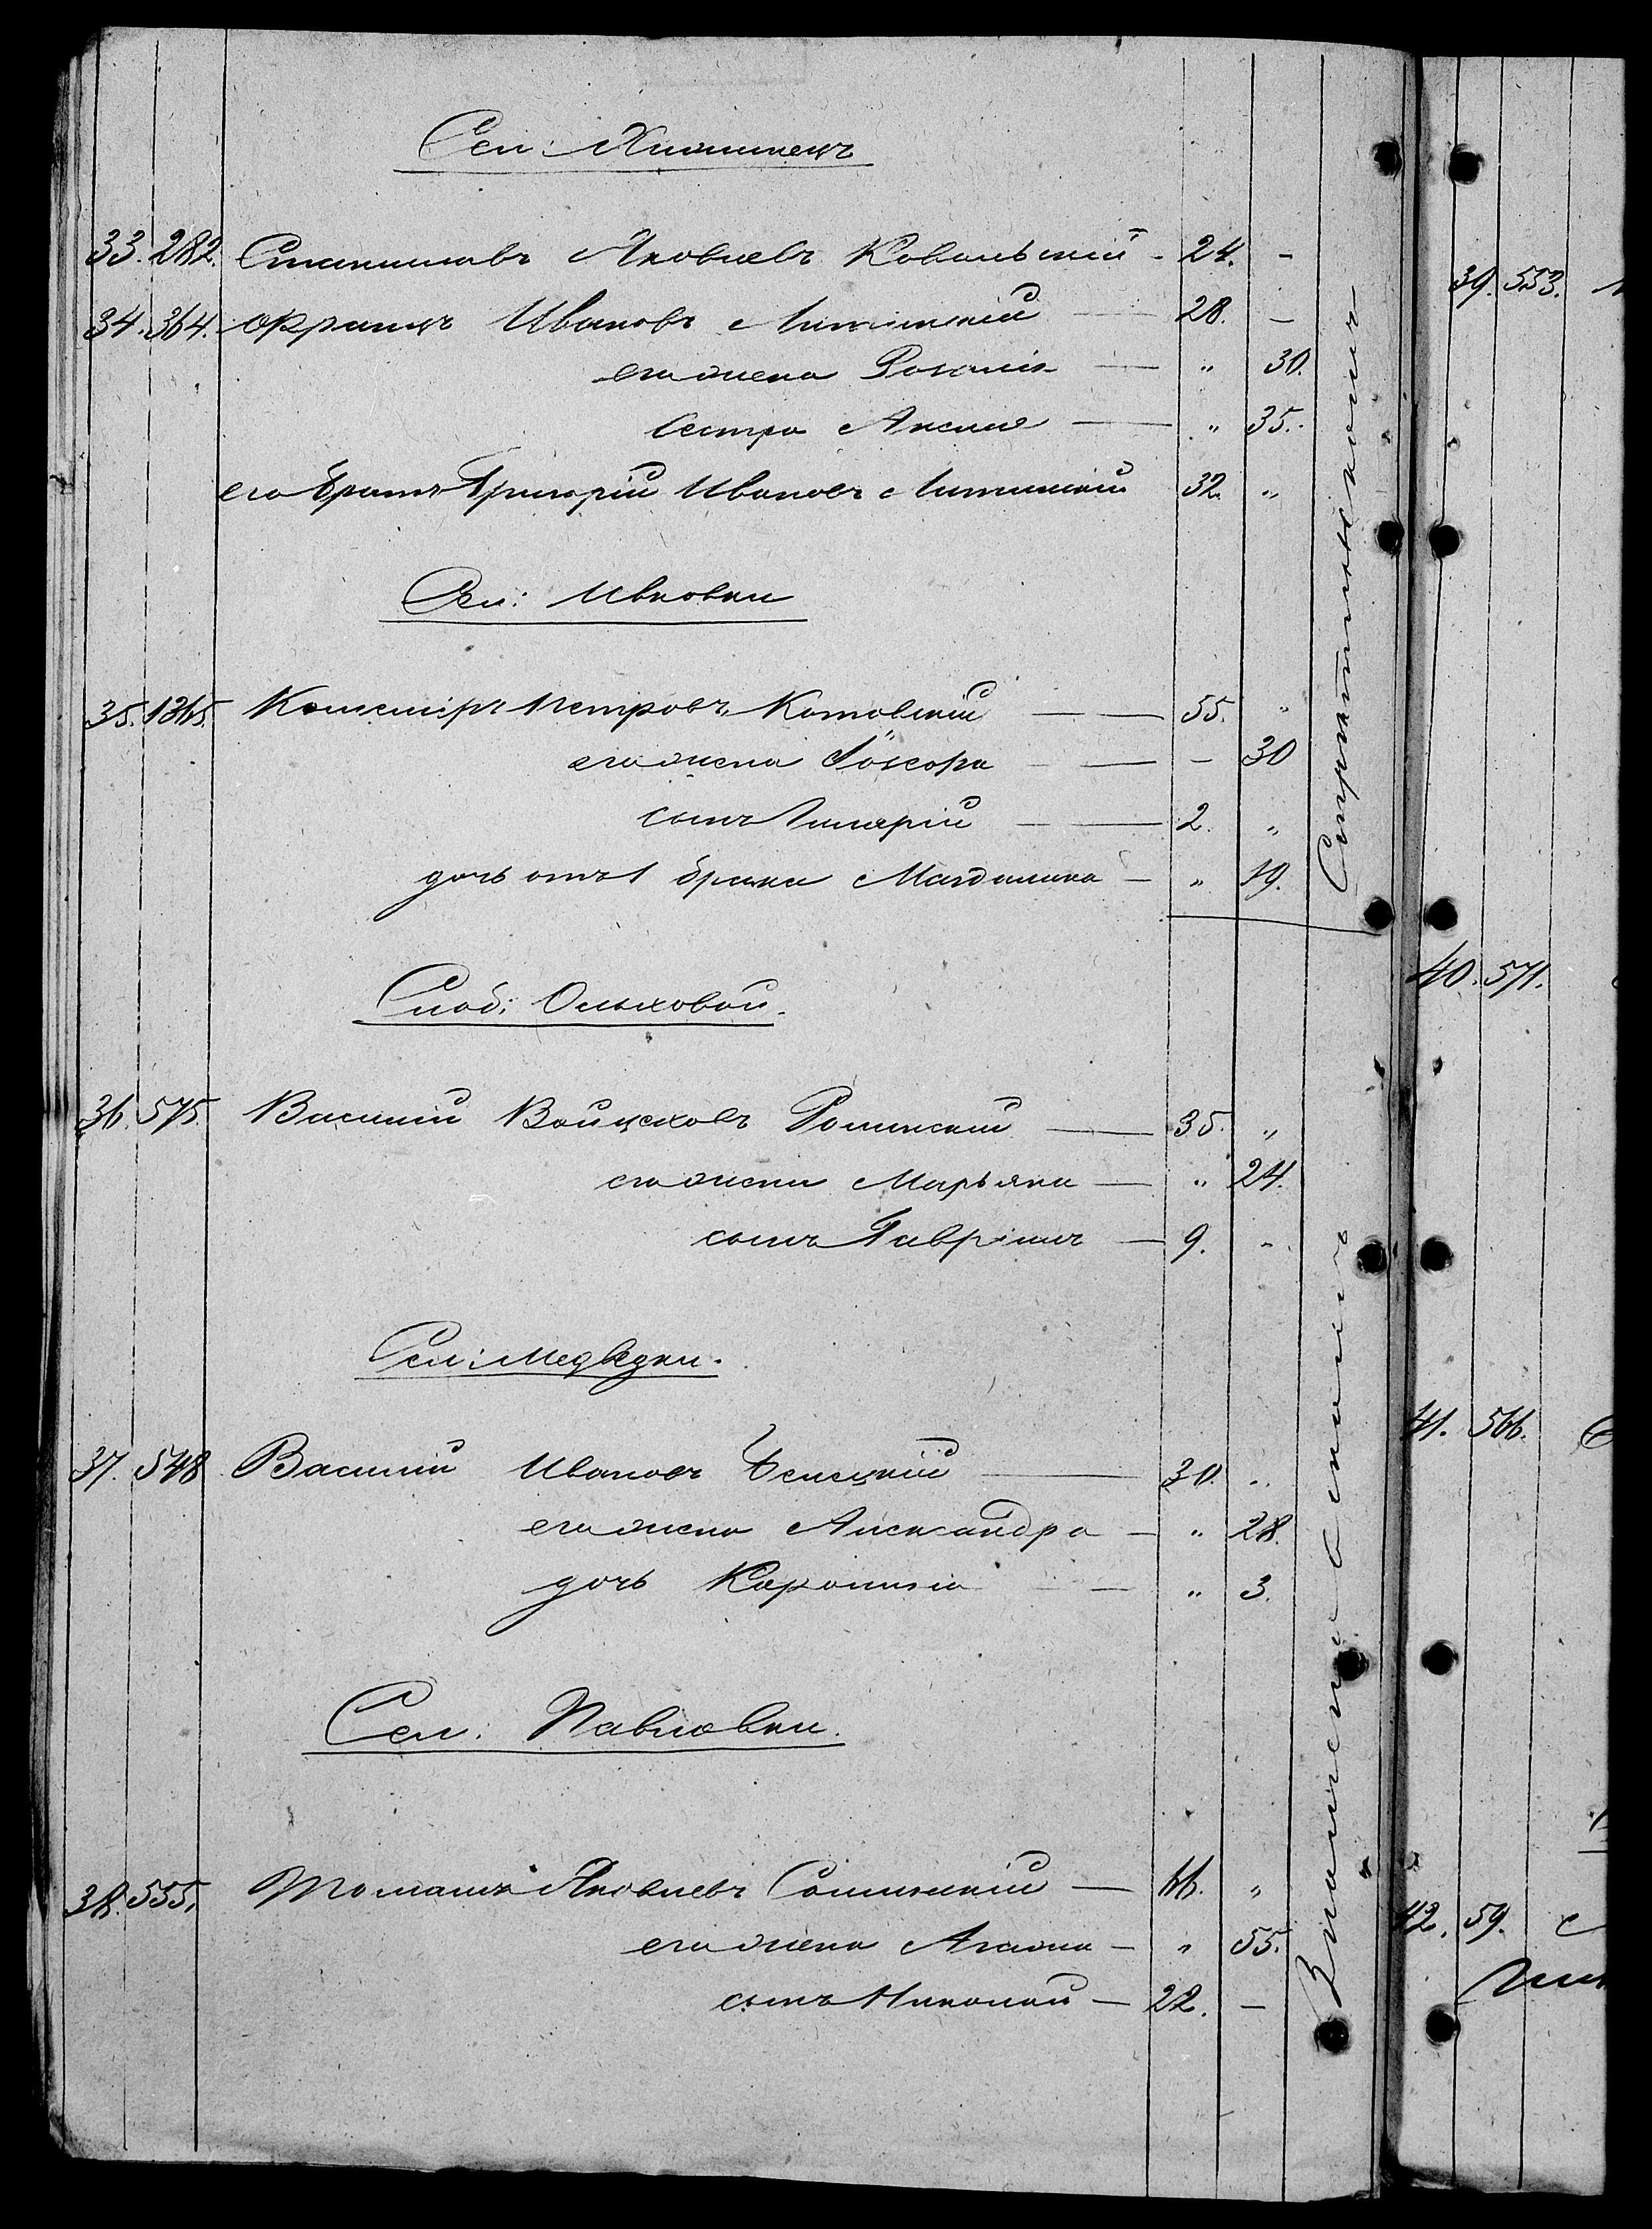 Сел:
33. 282. Станиславъ Яковлевъ Ковальскій - 24. -
34. 364. Францъ Ивановъ Литинскій — 28. -
его жена Розалія — " 30.
сестра Аксиня — " 35.
его братъ Григорій Ивановъ Литинскій 32. "
Сел: Ивковки
35. 1365. Казимиръ Петровъ Котовскій — 55. "
его жена — - 30
сынъ Валерій — 2. "
дочь отъ 1 брака Магдалина - " 19.
Слоб: Ольховой.
36. 575. Василій Войцеховъ Ролинскій — 35. "
его жена Марьяна — " 24.
сынъ Гавріилъ — 9. -
Сел: Медведки.
37. 548 Василій Ивановъ Белецкій — 30. "
его жена Александра — " 28.
дочь Каролина — " 3.
Сел: Павловки.
38. 555. Томашъ Яковлевъ — 66. "
его жена — " 55.
сынъ Николай — 22. -
39. 553.
40. 571.
41. 566.
42. 59.